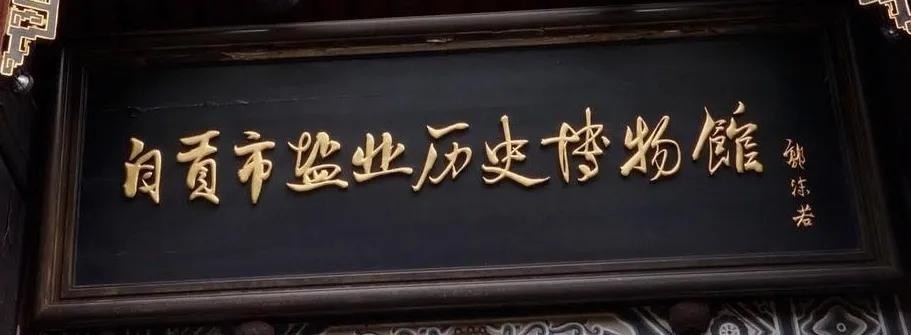 自贡市盐业历史博物馆
郭沫若